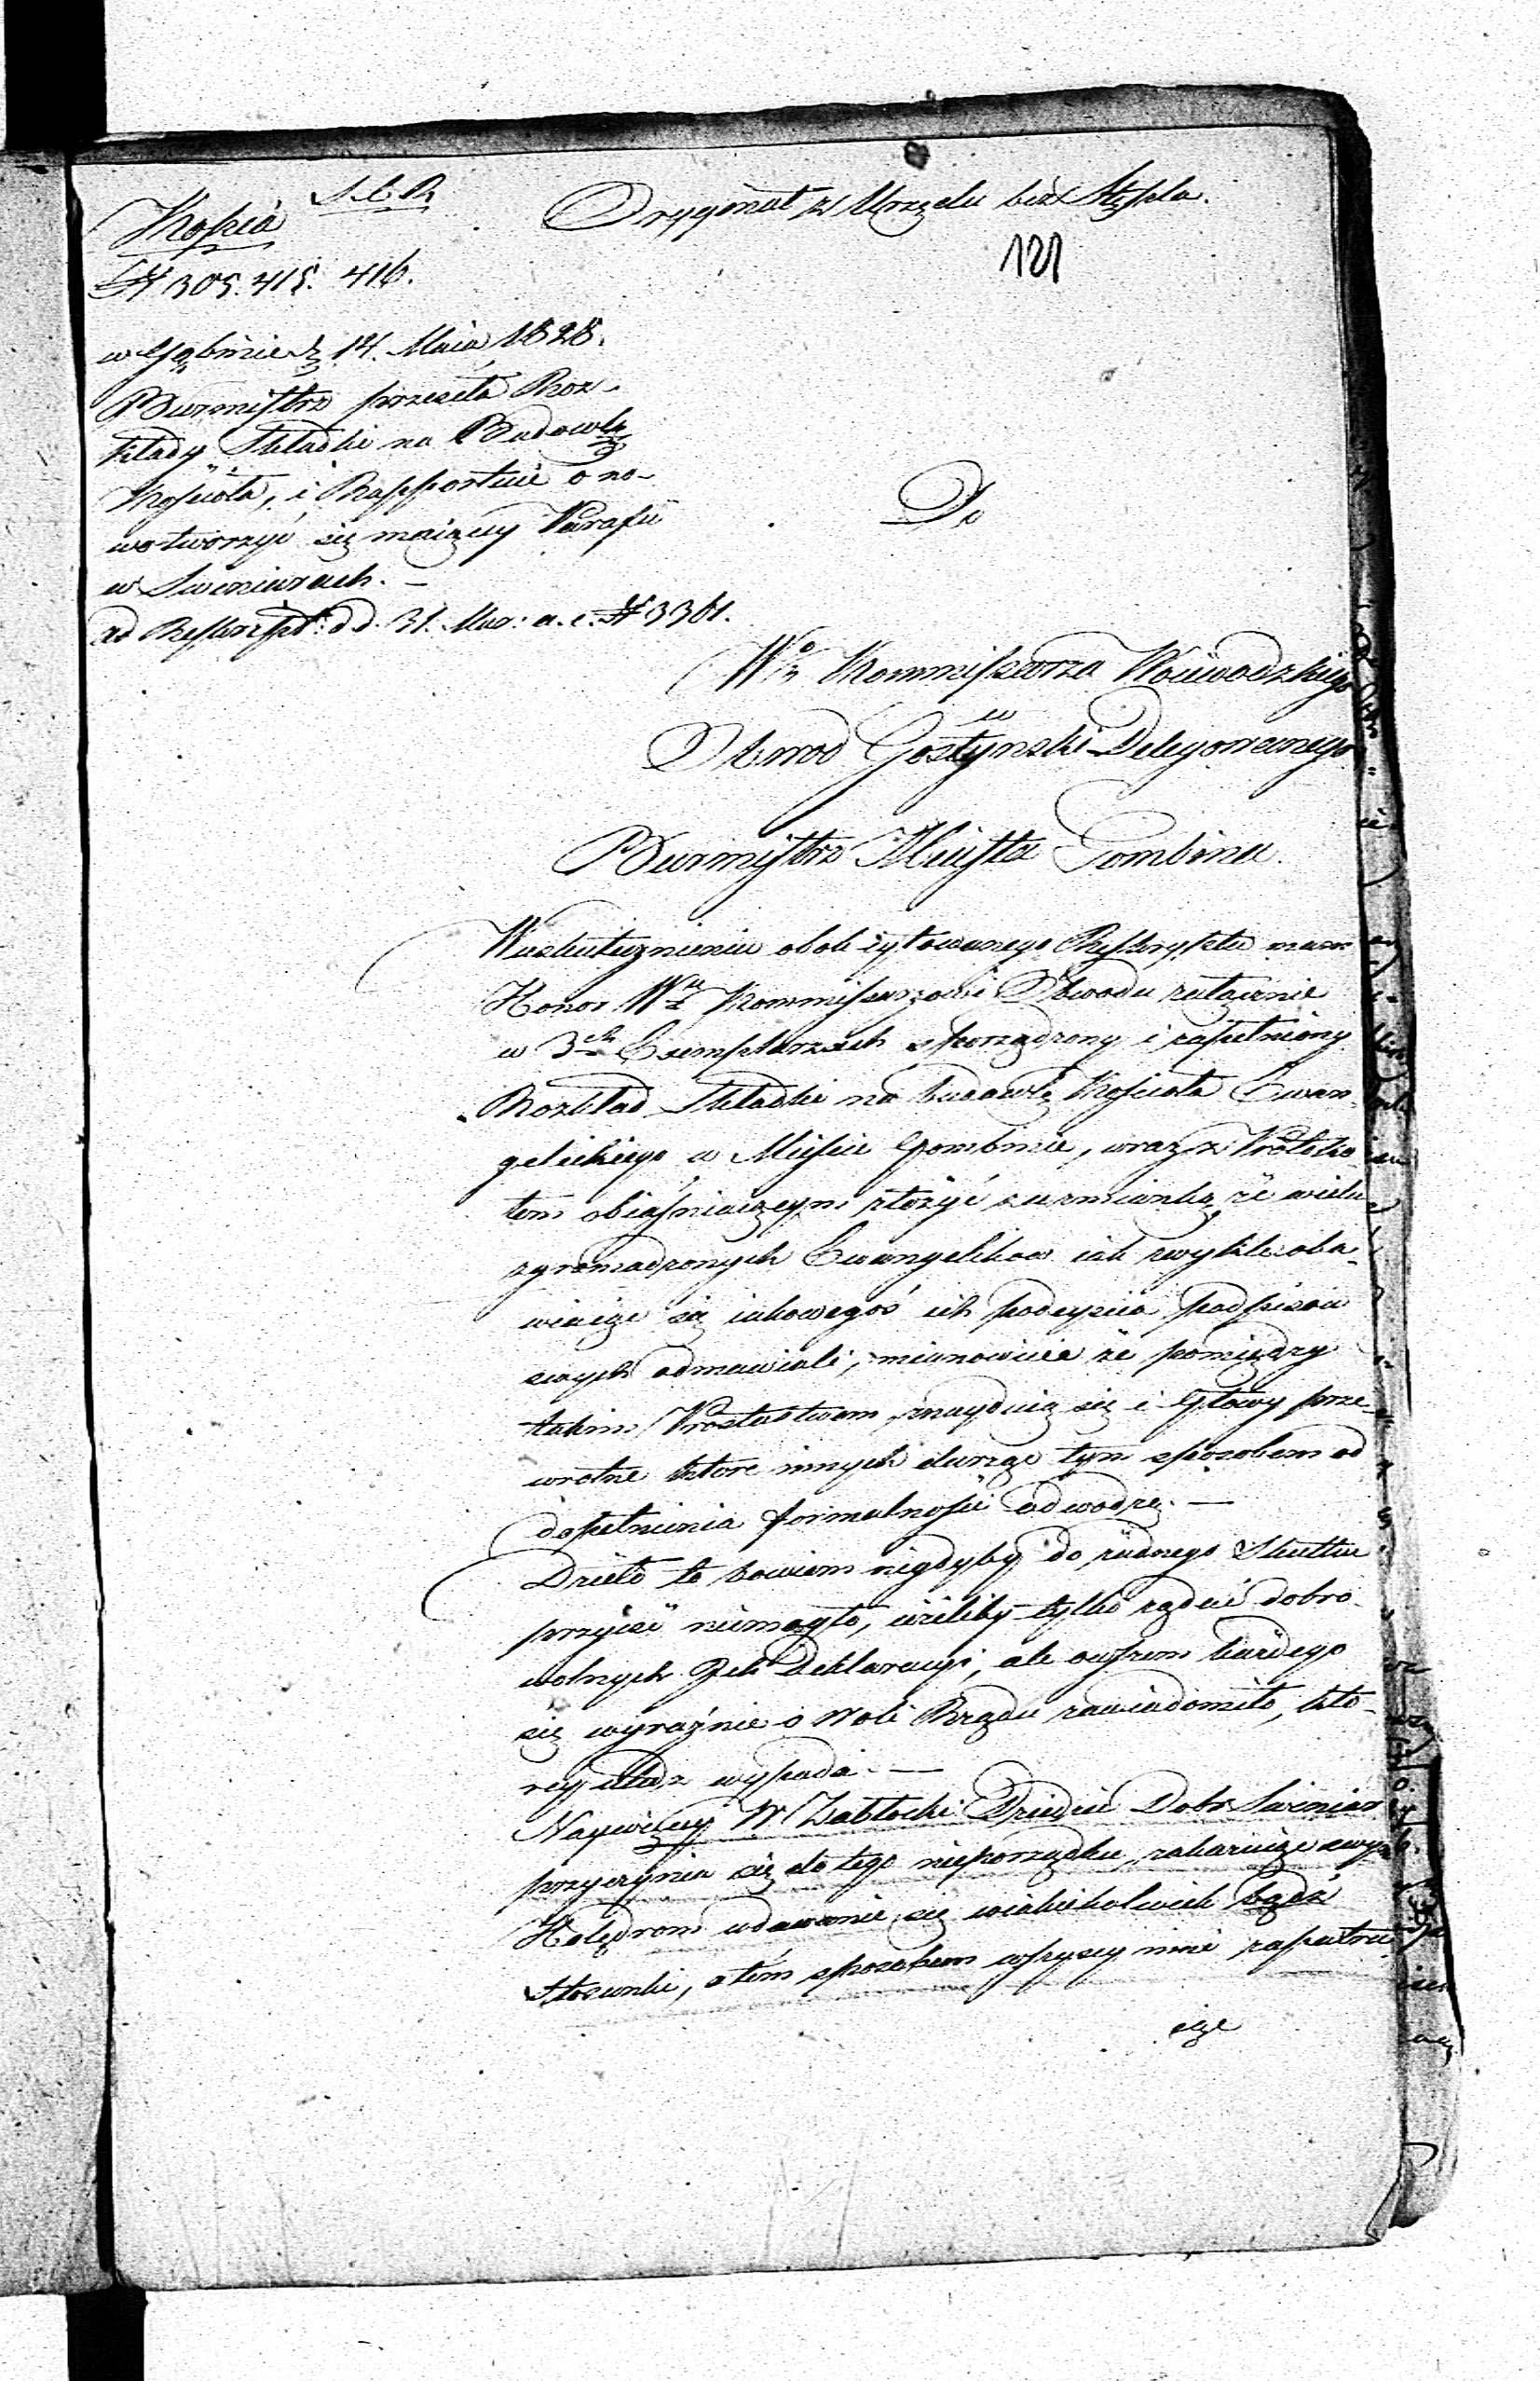 Kopia
Oryginał z Urzędu bez Stępla.
121
№ 305. 415. 416.
w Gąbinie d. 14. Maia 1828.
Burmistrz przeseła Roz-
kłady Składki na Budowlę
Kościoła, i Rapportuie o no-
wotworzyć się maiącey Parafii
w Swiniarach. –
ad Reskrypt: d d. 31. Mar: a. c. № 3361.
Do
Wo Kommissarza Woiewodzkiego
w
Obwod Gostynski Delegowanego
Burmistrz Miasta Gombina.
Wuskutecznieniu obok cytowanego Reskryptu mam
Honor Wu Kommissarzowi Obwodu załącznie
w 3ch Exemplarzach sporządzony i zapełniony
Rozkład Składki na budowlę Kościoła Ewan-
gelickiego w Mieście Gombinie, wraz z Protoko-
łem obiaśniaiącym złożyć z wzmianką, że wielu
zgromadzonych Ewangelikow iak zwykle oba-
wiaiąc się iakowegoś ich podeyścia podpisow
swych odmawiali, mianowicie że pomiędzy
takim Prostactwem znayduią się i Głowy prze-
wrotne ktore innych durząc tym sposobem od
dopełnienia formalności odwodzą. —
Dzieło to bowiem nigdyby do żadnego Skutku
przyiść niemogło, ieżeliby tylko żądać dobro-
wolnych Ich Deklaracyi, ale owszem każdego
się wyraźnie o Woli Rządu zawiadomiło, kto-
rey wypada. —
Naywięcey W Zabłocki Dziedzic Dobr Swiniar
przyczynia się do tego nieporządku, zakazuiąc swym
Holędrom wdawanie się wiakiekolwiek bądź
Stosunki, a tém sposobem wszyscy nimi zapatru-
iąc